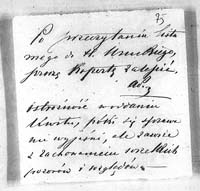 75
Po przeczytaniu listu
mego do H.
proszę Kopertę zalepić,
ostrożność w oddaniu
Kwitu, póki się sprawa
nie wyjaśni, ale zawsze
z zachowaniem wszelkich
pozorów i względów.